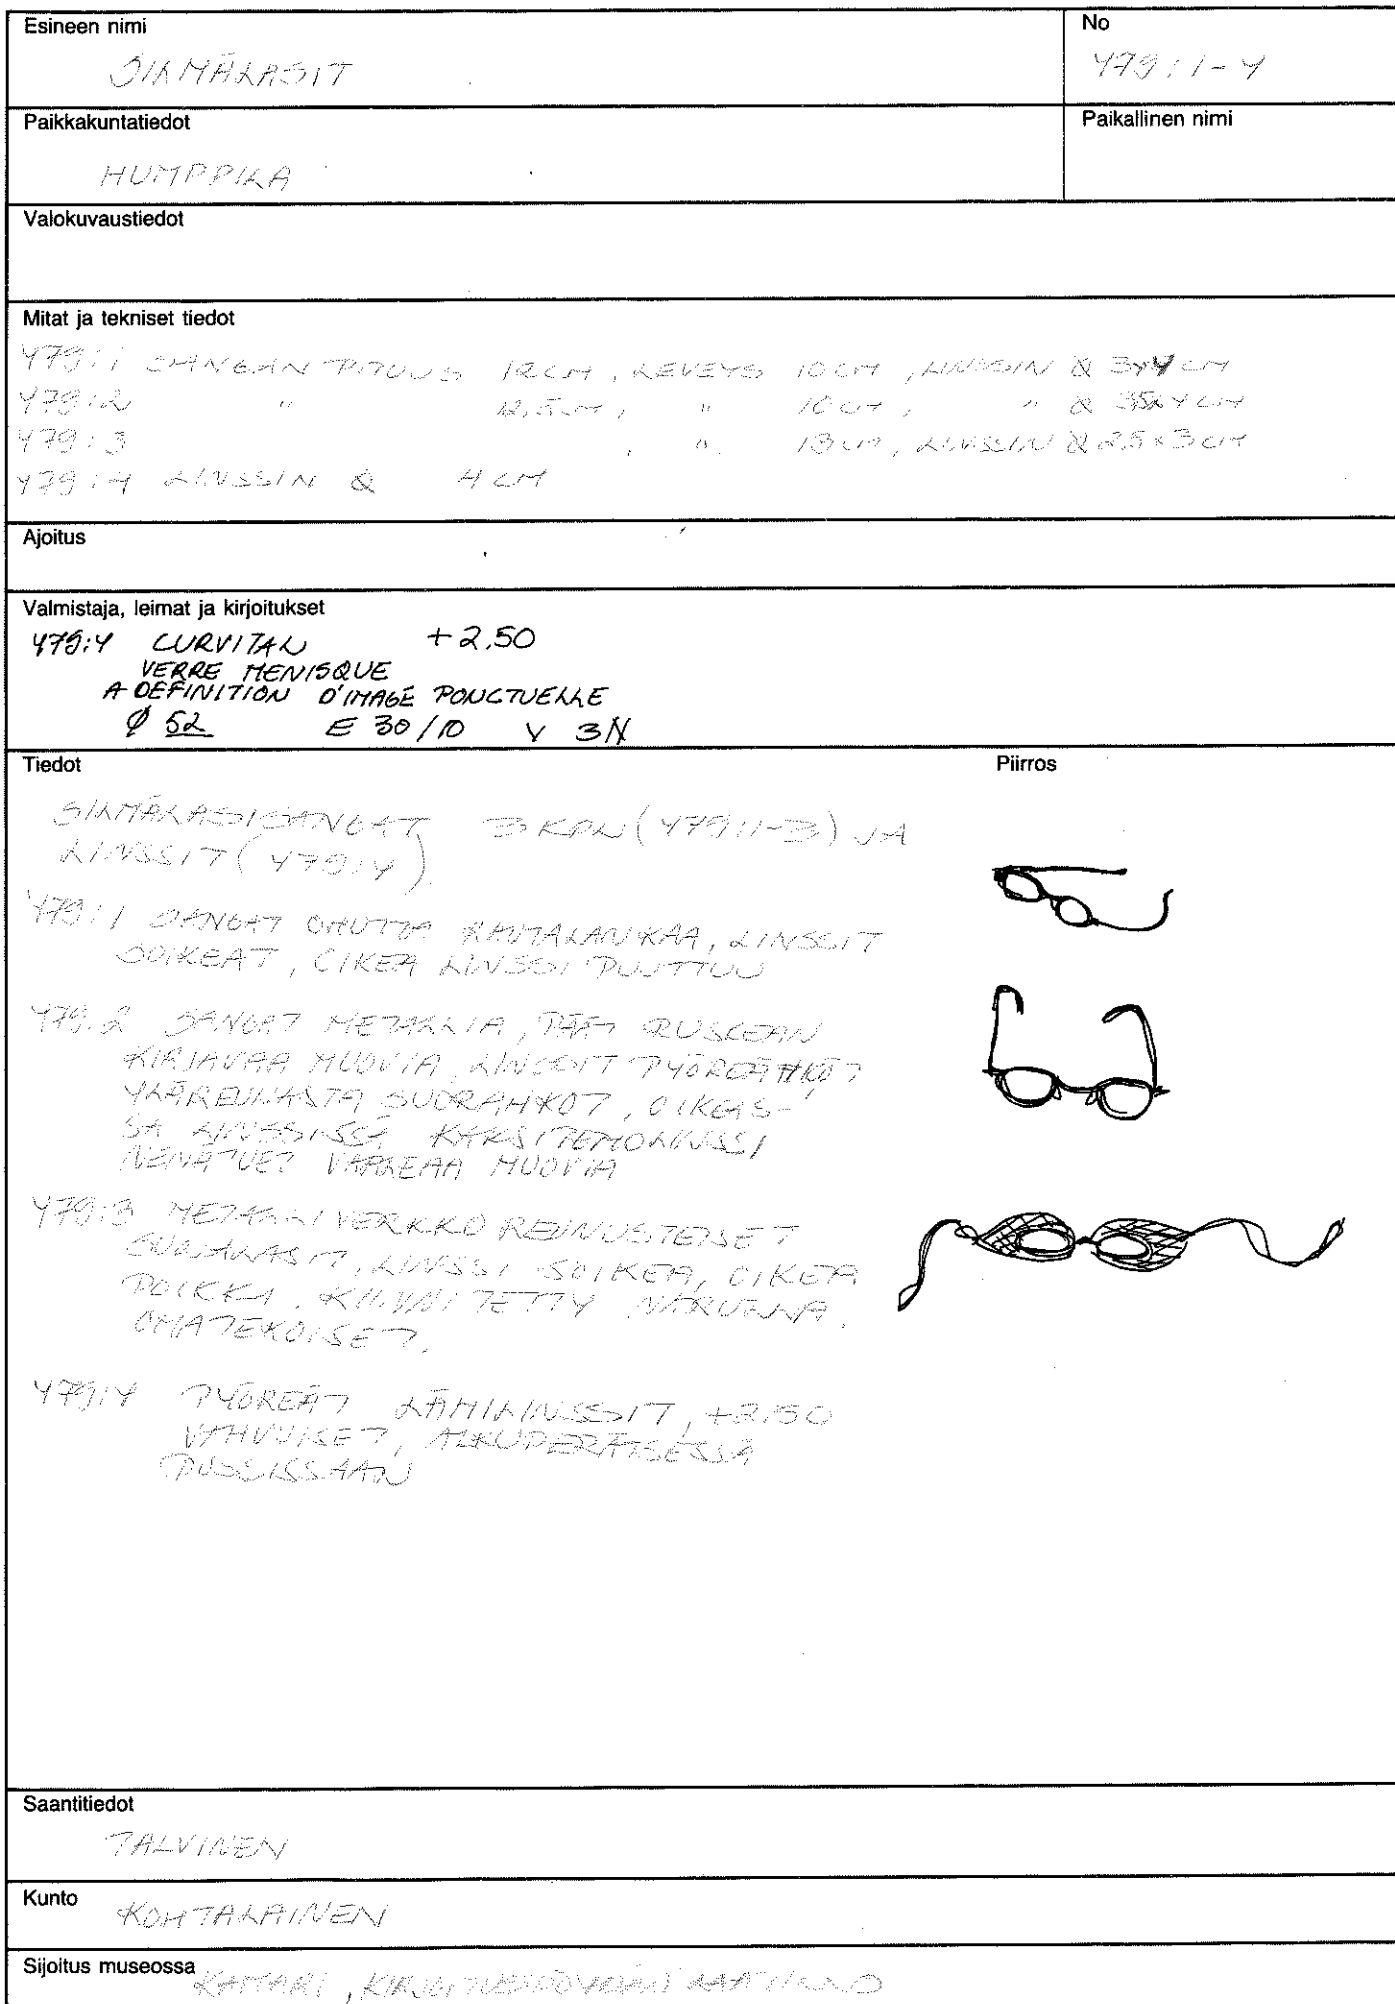 Esineen nimi
SILMÄLASIT
No
479:1-4
Paikkakuntatiedot
HUMPPILA
Paikallinen nimi
Valokuvaustiedot
Mitat ja tekniset tiedot
479:1 SANGAN PITUUS 12CM, LEVEYS 10CM, LINSSIN Ø 3x4 CM
479:2 " 12,5CM, " 10CM, " Ø 3,5x4 CM
479:3 , " 13CM, LINSSIN Ø 2,5×3CM
479:4 LINSSIN Ø 4CM
Ajoitus
Valmistaja, leimat ja kirjoitukset
479:4 CURVITAL +2.50
VERRE MENISQUE
A DEFINITION D'IMAGE PONCTUELLE
Ø 52 E 30/10 V 3N
Tiedot
Piirros
SILMÄLASISANGAT 3 KPL (479:1-3) JA
LINSSIT (479:4).
479:1 SANGAT OHUTTA RAUTALANKAA, LINSSIT
SOIKEAT, OIKEA LINSSI PUUTTUU
479:2 SANGAT METALLIA, PÄÄT RUSKEAN
KIRJAVAA MUOVIA, LINSSIT PYÖREÄHKÖT,
YLÄREUNASTA SUORAHKOT, OIKEAS-
SA LINSSISSÄ KAKSITEHOLINSSI
NENÄTUET VAALEAA MUOVIA
479:3 METALLIVERKKO REUNUSTEISET
SUOJALASIT, LINSSI SOIKEA, OIKEA
POIKKI. KIINNITETTY NARULLA.
OMATEKOISET.
479:4 PYÖREÄT LÄHILINSSIT, +2,50
VAHVUISET, ALKUPERÄISESSÄ
PUSSISSAAN
Saantitiedot
TALVINEN
Kunto
KOHTALAINEN
Sijoitus museossa
KAMARI, KIRJOITUSPÖYDÄN LAATIKKO